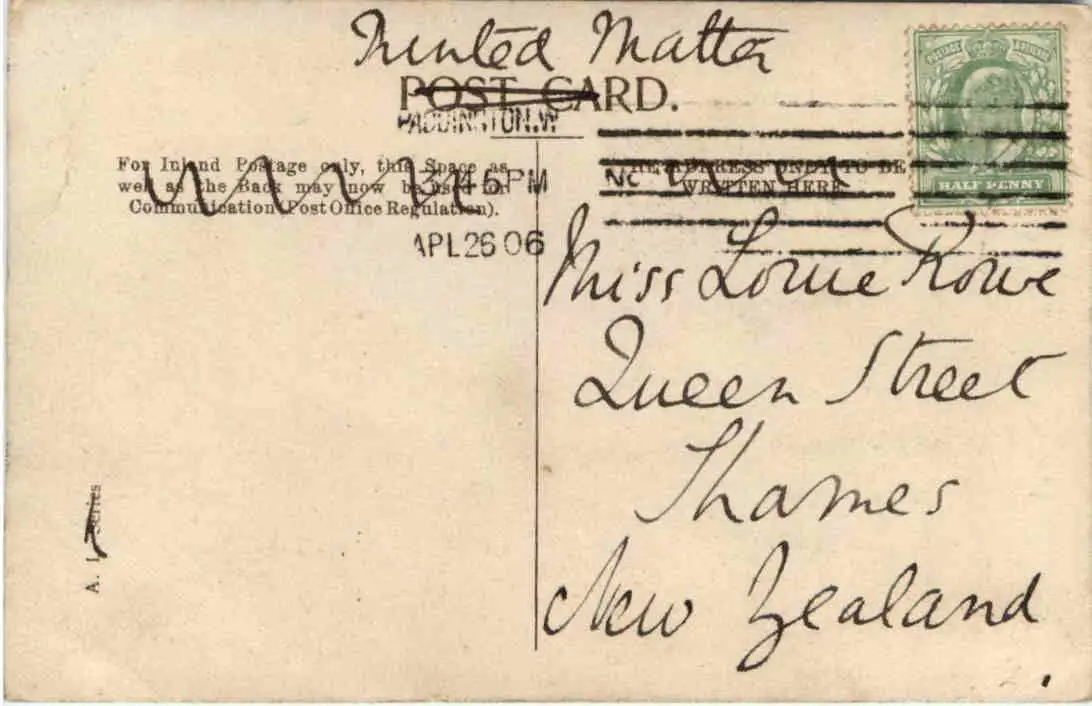 Printed Matter
POST CARD.
PADDINGTON.W
For Inland Postage only, this Space as
well as the Back may now be used for
Communication (Post Office Regulation).
45 PM
APL 26 06
THE ADDRESS ONLY TO BE
WRITTEN HERE
POSTAGE REVENUE
HALF PENNY
Miss Lorrie Rowe
Queen Street
Thames
New Zealand
A. Series